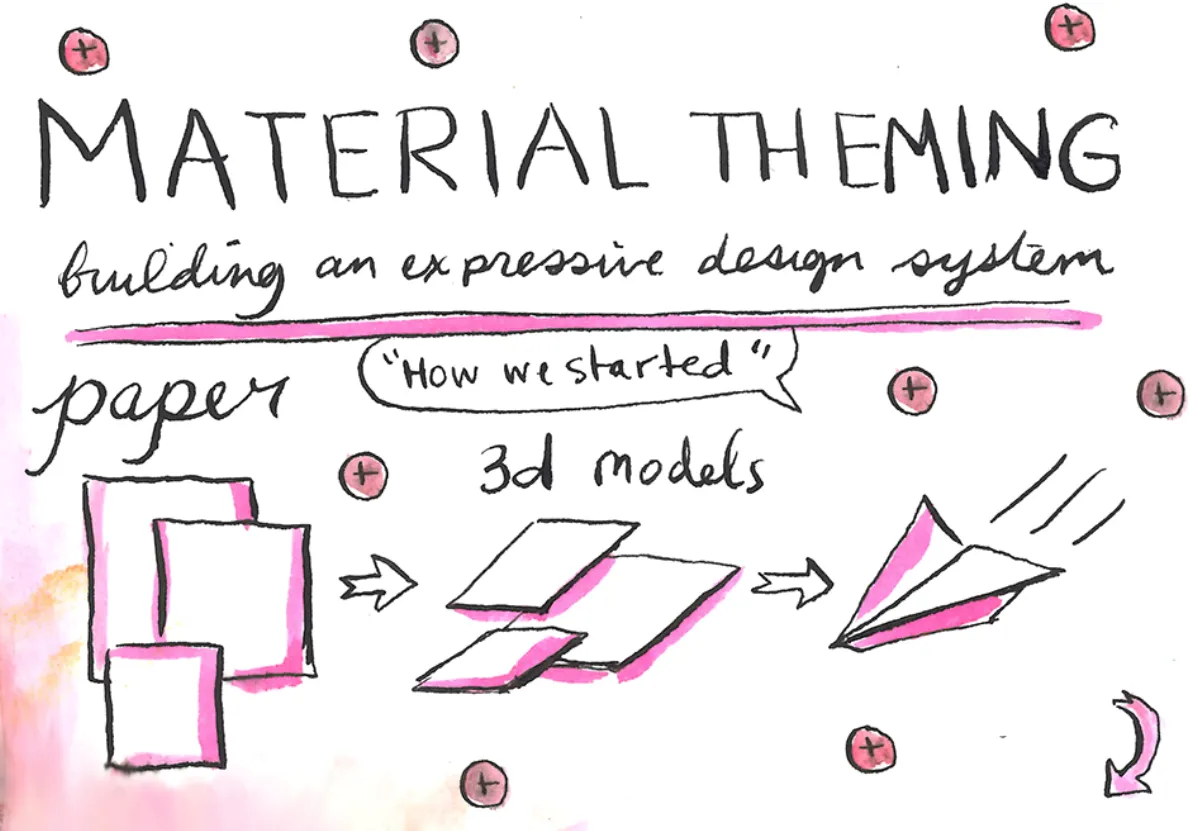 MATERIAL THEMING
building an expressive design system
"How we started"
paper
3d models